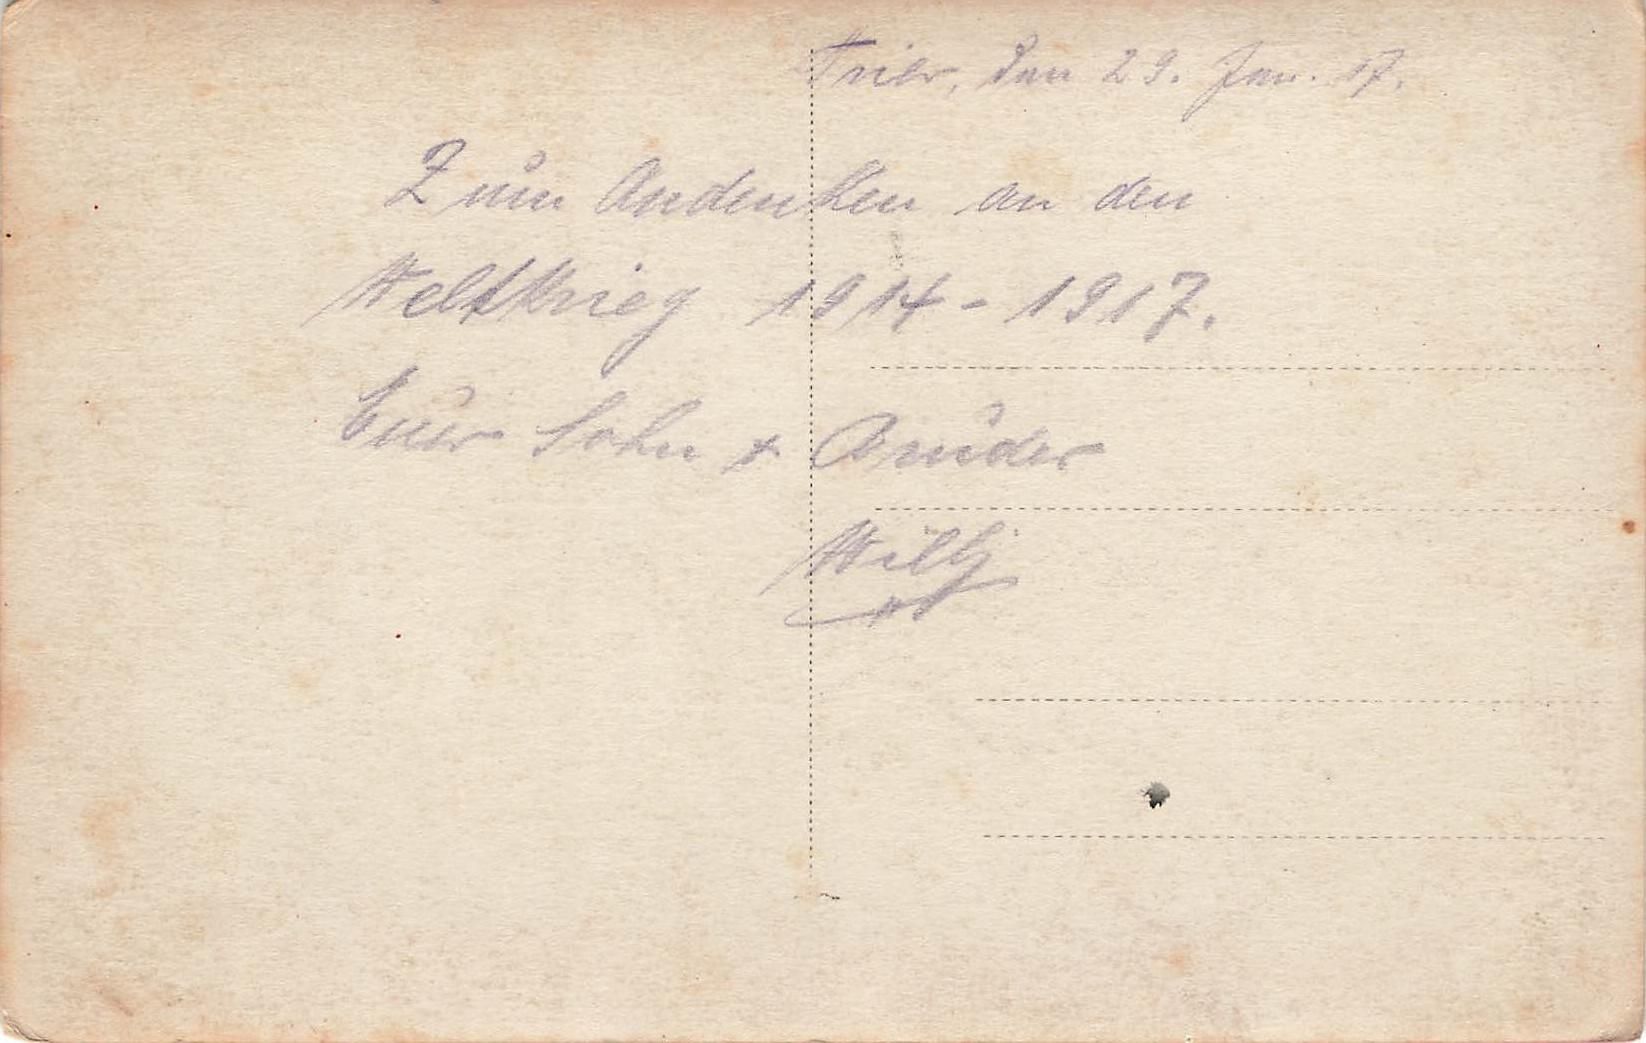 Trier, den 29. Jan. 17.
Zum Andenken an den
Weltkrieg 1914 - 1917.
Euer Sohn + Bruder
Willy